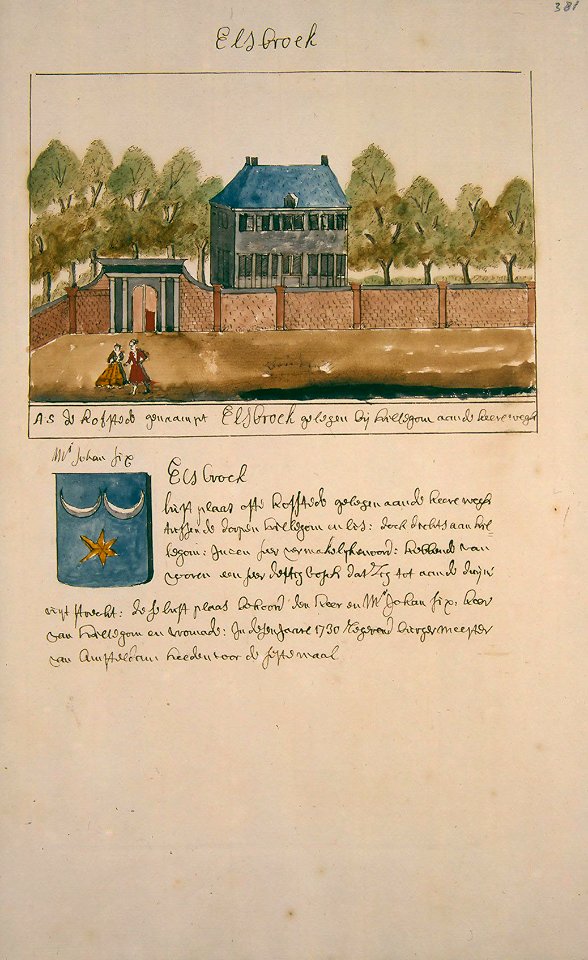 381
Elsbroek
As de hofstede genaampt Elsbroek gelegen bij hillegom aande heerewegh
Mr Johan six
Elsbroek
lust plaats ofte hofstede gelegen aande heere wegh
tussen de dorpen hillegom en lis: doch dichts aan hil-
legom: In een seer vermakelijke oord: hebbende van
vooren een seer deftig bosch dat sig tot aan de duijn
uijt streckt: dese lust plaas behoord den heer en Mr Johan six, heer
van hillegom en vromade: In desen jaare 1730 Regerend burgermeester
van Amsteldam heeden voor de seste maal